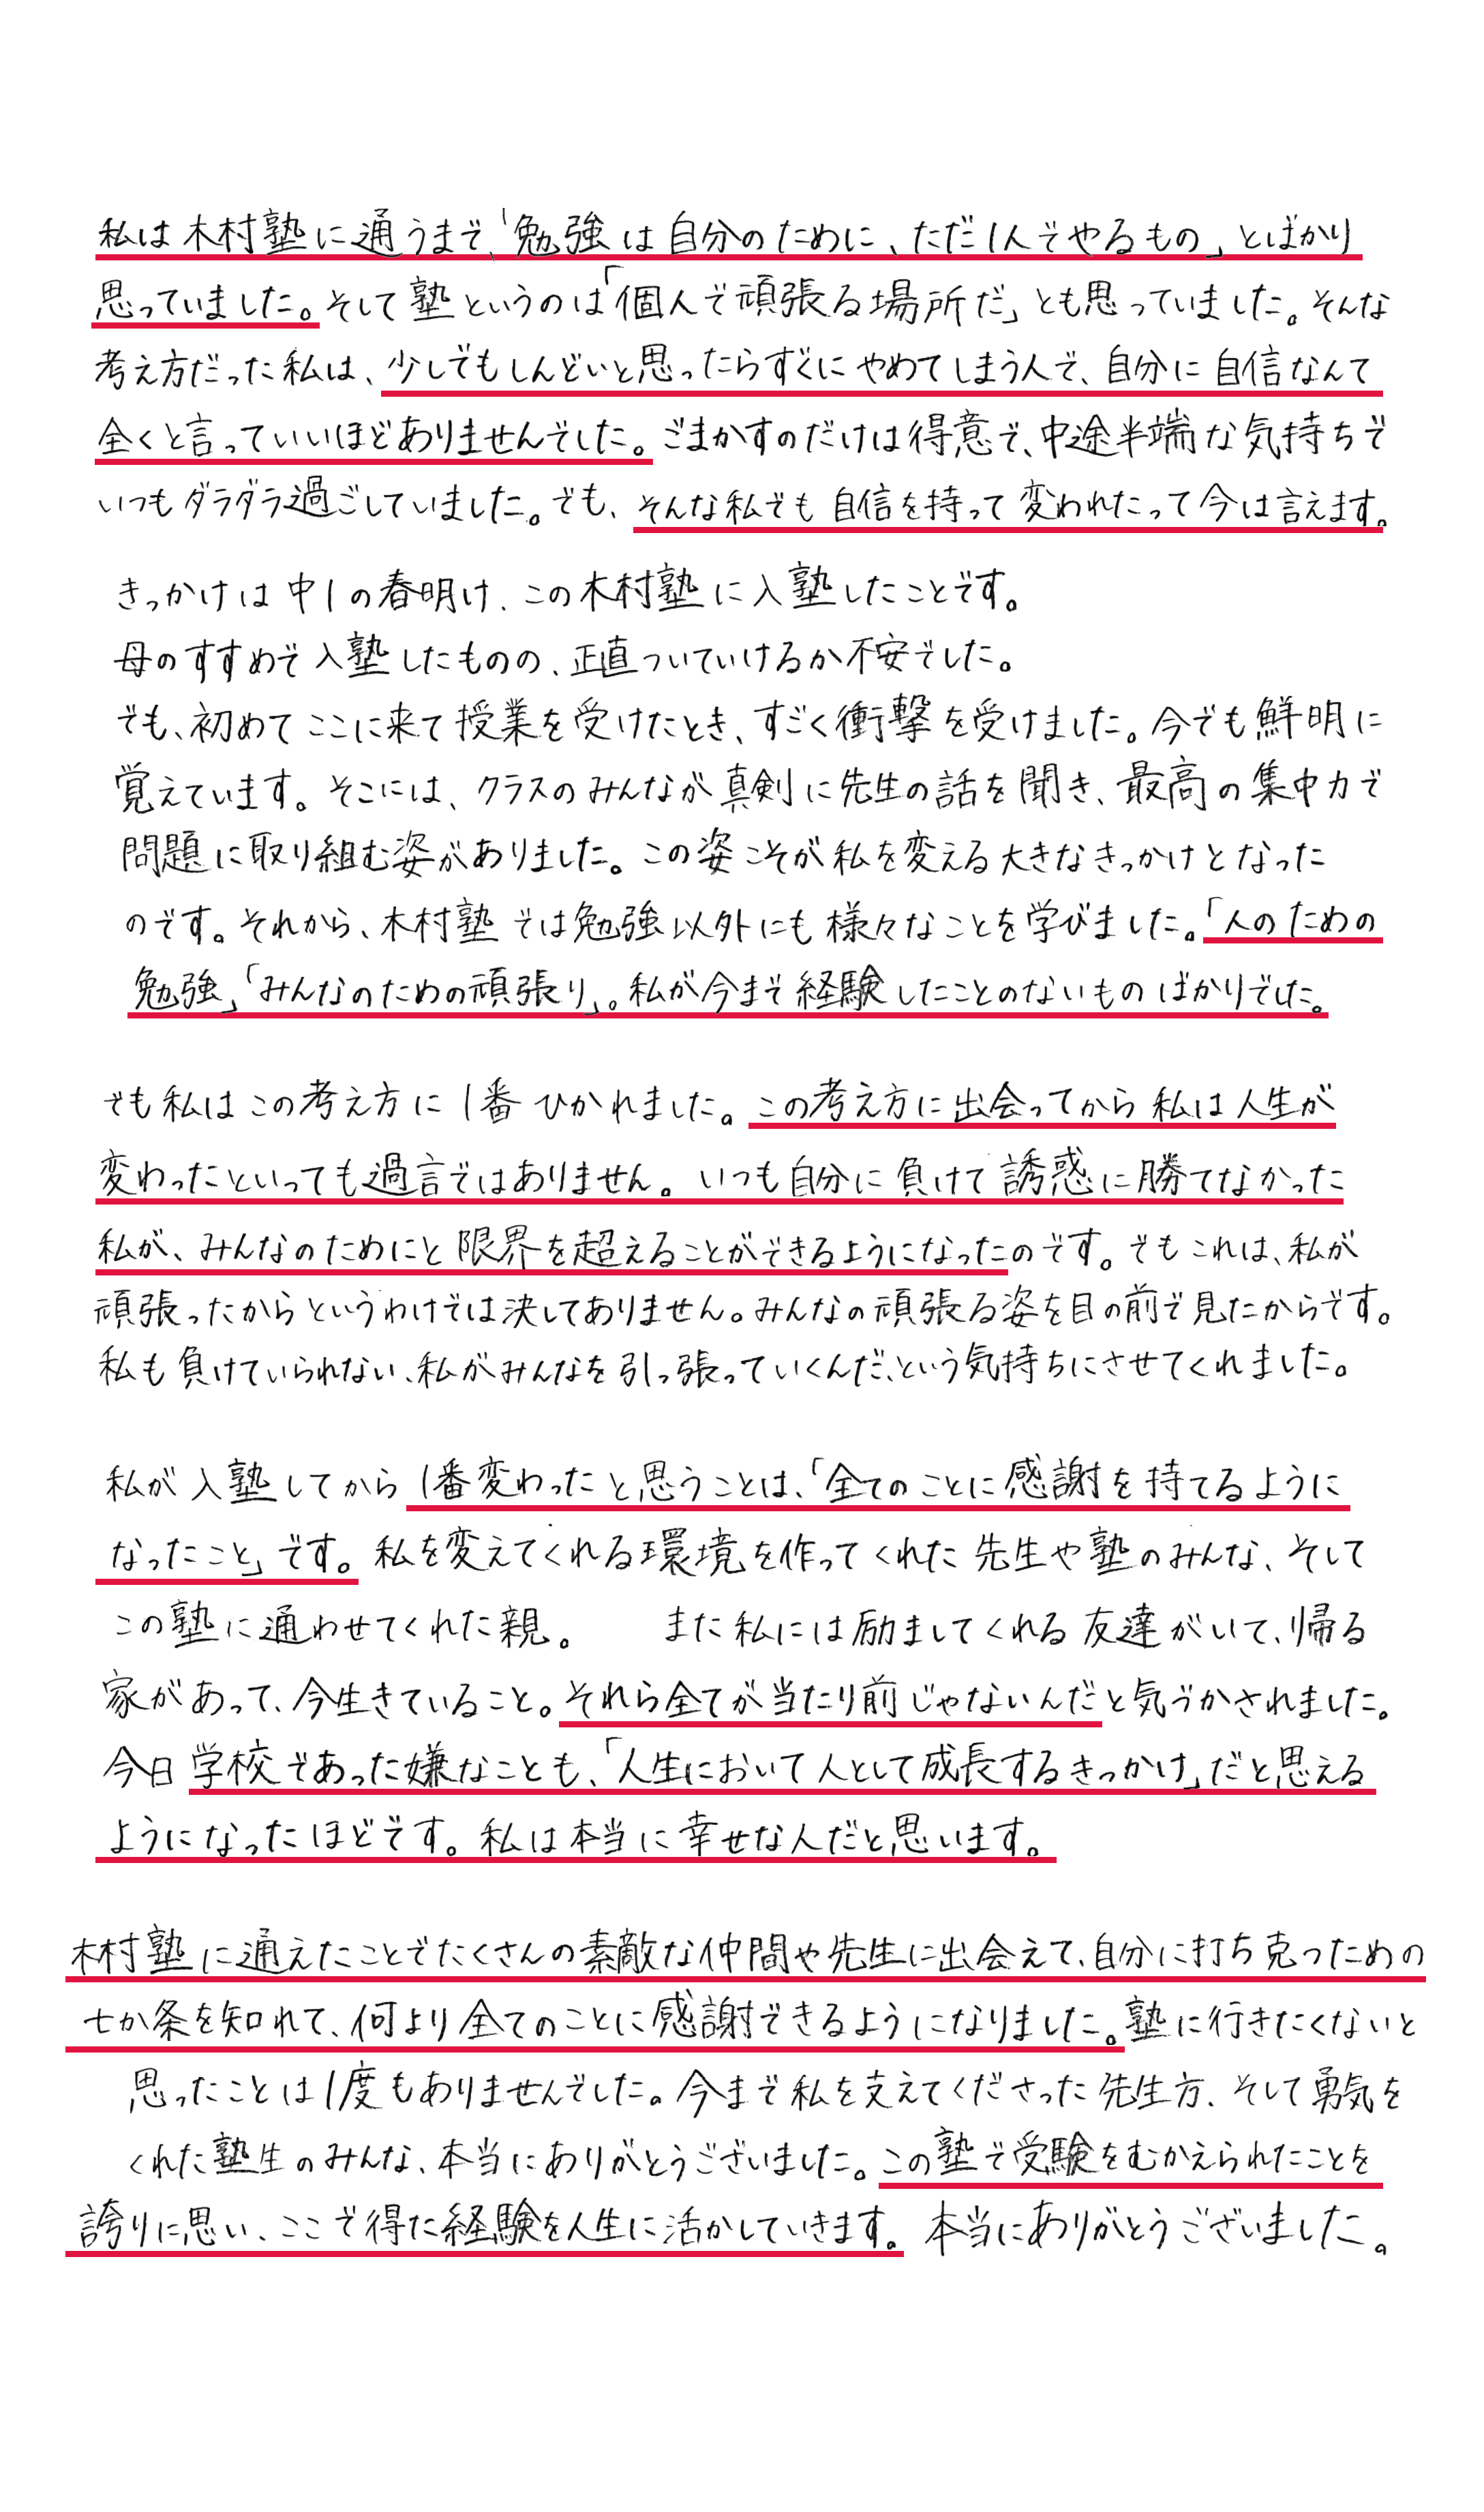 私は木村塾に通うまで、「勉強は自分のために、ただ1人でやるもの」とばかり
思っていました。そして塾というのは「個人で頑張る場所だ」とも思っていました。そんな
考え方だった私は、少しでもしんどいと思ったらすぐにやめてしまう人で、自分に自信なんて
全くと言っていいほどありませんでした。ごまかすのだけは得意で、中途半端な気持ちで
いつもダラダラ過ごしていました。でも、そんな私でも自信を持って変われたって今は言えます。
きっかけは中1の春明け、この木村塾に入塾したことです。
母のすすめで入塾したものの、正直ついていけるか不安でした。
でも、初めてここに来て授業を受けたとき、すごく衝撃を受けました。今でも鮮明に
覚えています。そこには、クラスのみんなが真剣に先生の話を聞き、最高の集中力で
問題に取り組む姿がありました。この姿こそが私を変える大きなきっかけとなった
のです。それから、木村塾では勉強以外にも様々なことを学びました。「人のための
勉強」「みんなのための頑張り」。私が今まで経験したことのないものばかりでした。
でも私はこの考え方に1番ひかれました。この考え方に出会ってから私は人生が
変わったといっても過言ではありません。いつも自分に負けて誘惑に勝てなかった
私が、みんなのためにと限界を超えることができるようになったのです。でもこれは、私が
頑張ったからというわけでは決してありません。みんなの頑張る姿を目の前で見たからです。
私も負けていられない、私がみんなを引っ張っていくんだ、という気持ちにさせてくれました。
私が入塾してから1番変わったと思うことは、「全てのことに感謝を持てるように
なったこと」です。私を変えてくれる環境を作ってくれた先生や塾のみんな、そして
この塾に通わせてくれた親。 また私には励ましてくれる友達がいて、帰る
家があって、今生きていること。それら全てが当たり前じゃないんだと気づかされました。
今日学校であった嫌なことも、「人生において人として成長するきっかけ」だと思える
ようになったほどです。私は本当に幸せな人だと思います。
木村塾に通えたことでたくさんの素敵な仲間や先生に出会えて、自分に打ち克つための
七か条を知れて、何より全てのことに感謝できるようになりました。塾に行きたくないと
思ったことは1度もありませんでした。今まで私を支えてくださった先生方、そして勇気を
くれた塾生のみんな、本当にありがとうございました。この塾で受験をむかえられたことを
誇りに思い、ここで得た経験を人生に活かしていきます。本当にありがとうございました。